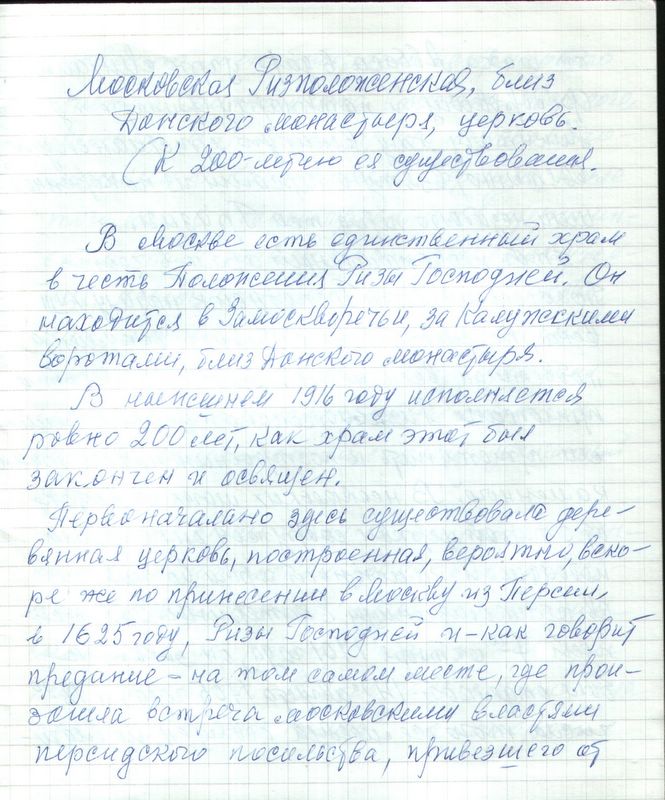 Московская Ризположенская, близ
Донского монастыря, церковь.
(К 200-летию ея существования.
В Москве есть единственный храм
в честь Положения Ризы Господней. Он
находится в Замоскворечьи, за Калужскими
воротами, близ Донского монастыря.
В нынешнем 1916 году исполняется
ровно 200 лет, как храм этот был
закончен и освящен.
Первоначально здесь существовала дере-
вянная церковь, построенная, вероятно, вско-
ре же по принесении в Москву из Персии,
в 1625 году, Ризы Господней и - как говорит
предание - на том самом месте, где прои-
зошла встреча московскими властями
персидского посольства, привезшего от